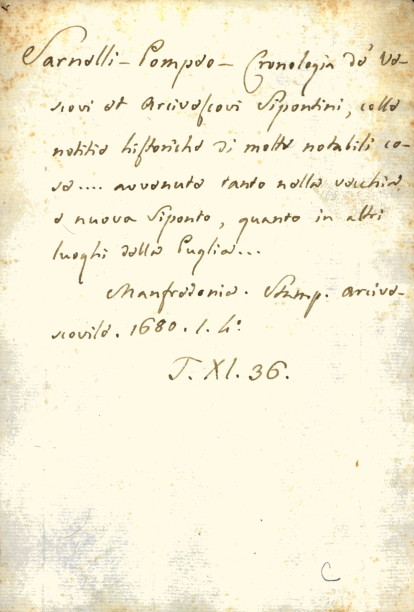 Sarnelli - Pompeo - Cronologia de' Ve-
scovi et Arcivescovi Sipontini, colle
notitie historiche di molte notabili co-
se.... avvenute tanto nella vecchia
e nuova Siponto, quanto in altri
luoghi della Puglia...
Manfredonia. Stamp. Arcive-
scovile. 1680. 1. 4º.
T. XI. 36.
C